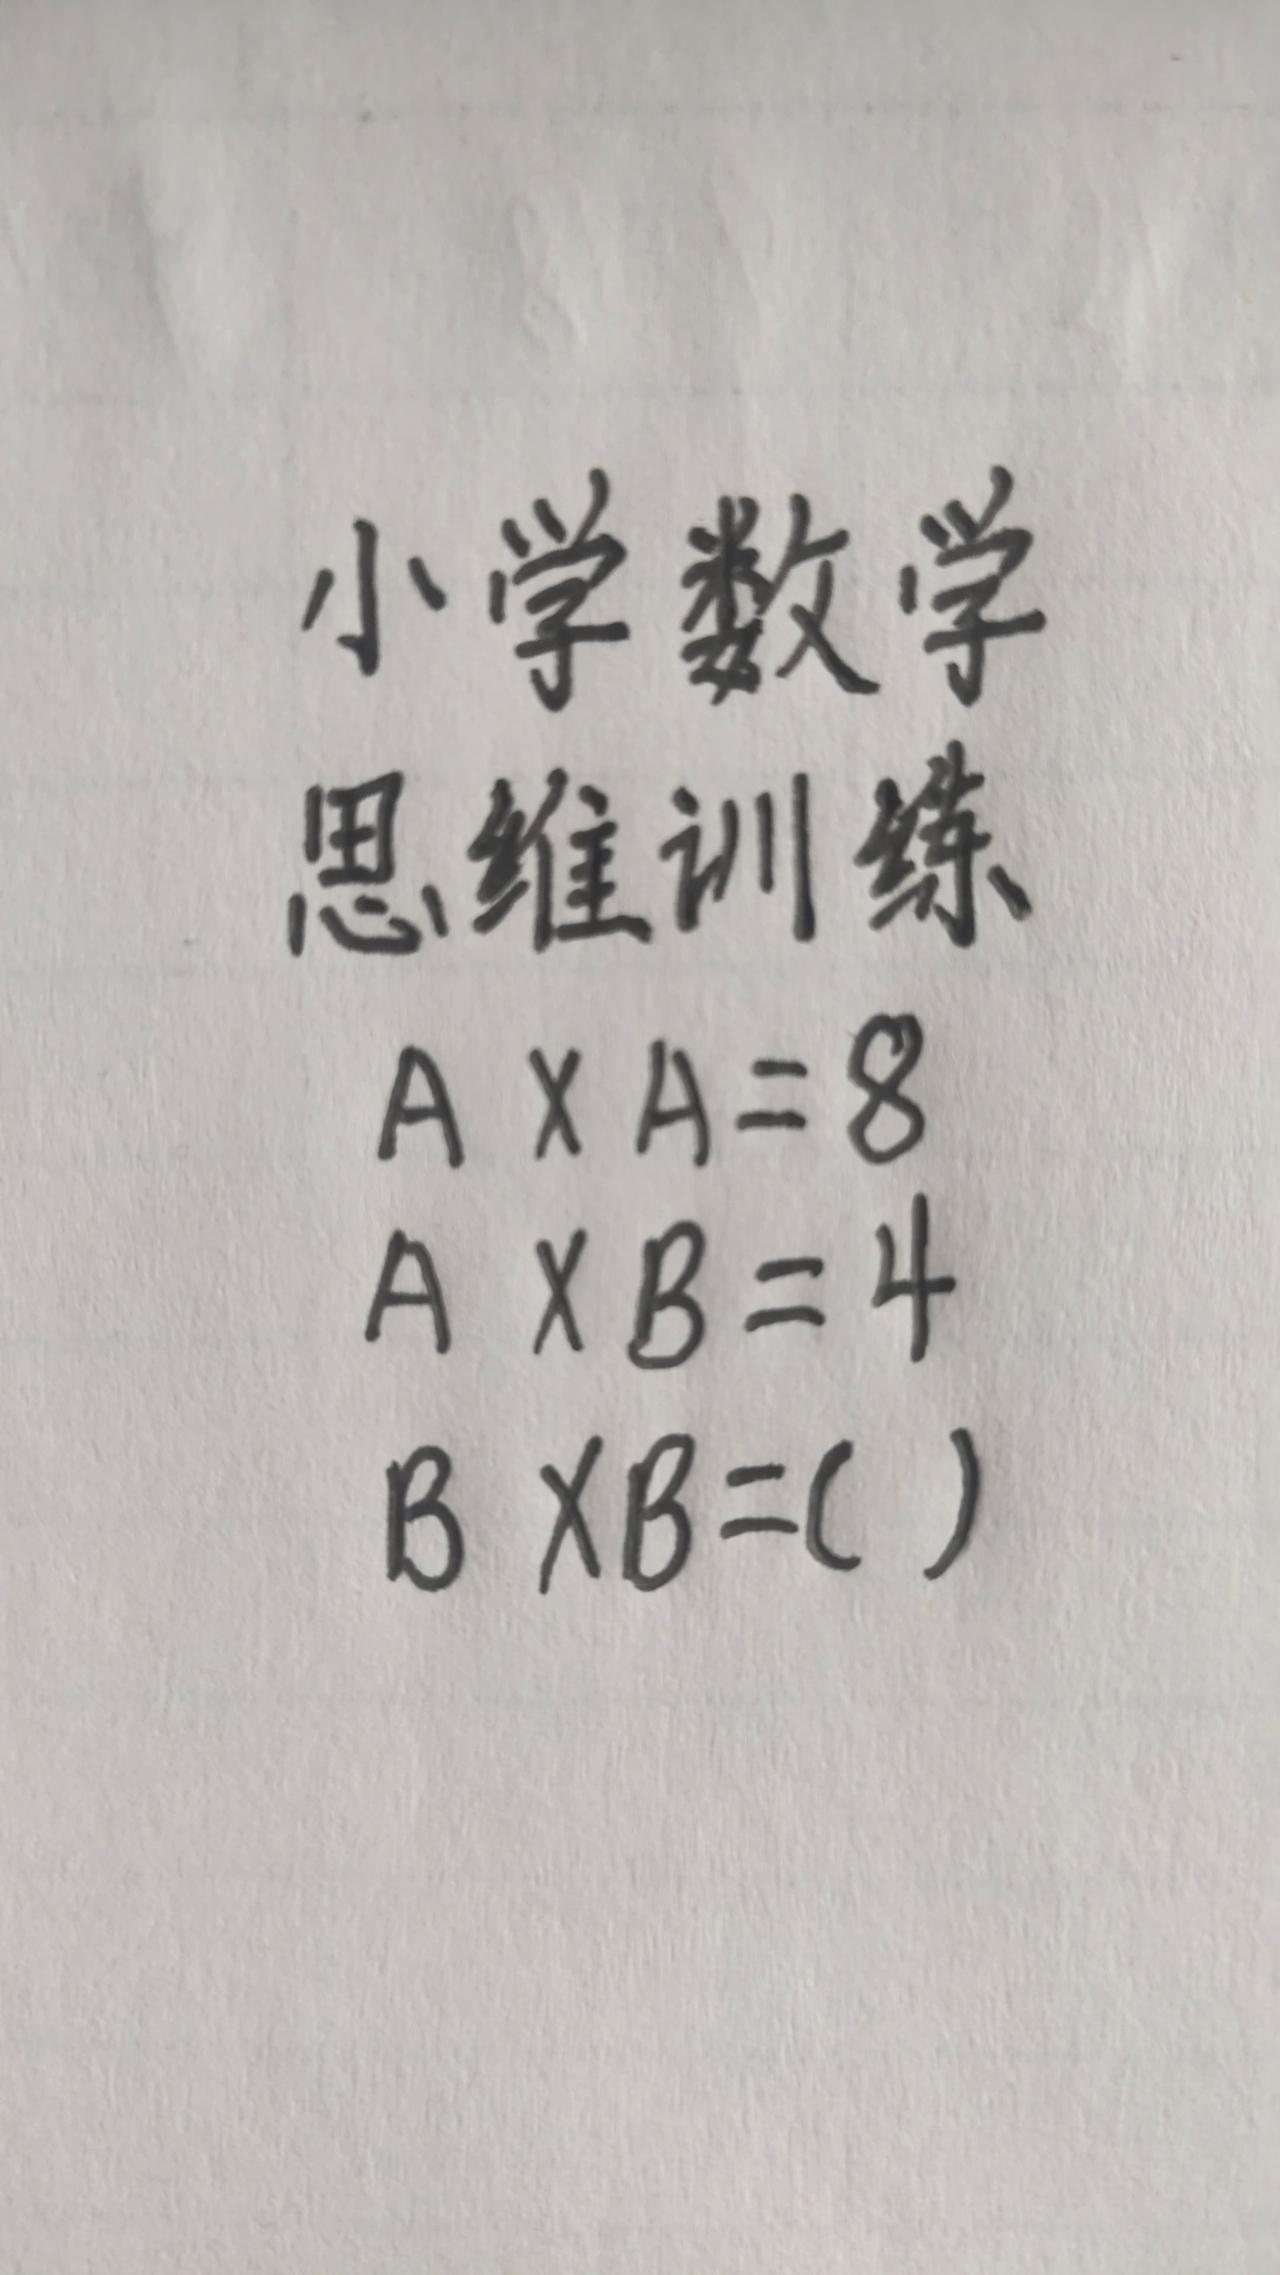 小学数学
思维训练
A×A=8
A×B=4
B×B=( )